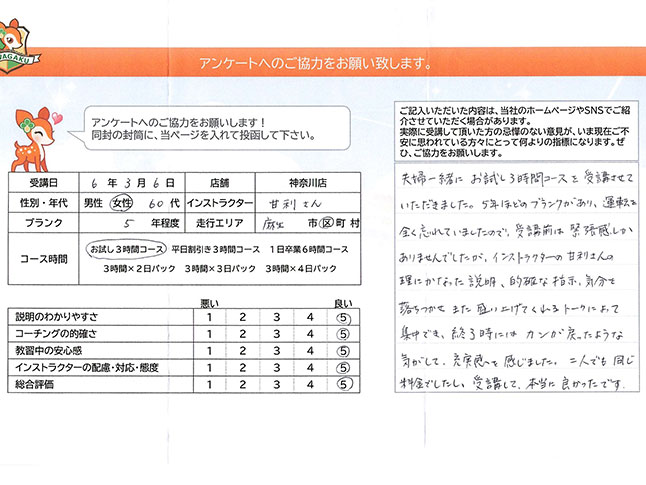 NAGAKU
アンケートへのご協力をお願い致します。
アンケートへのご協力をお願いします！
同封の封筒に、当ページを入れて投函して下さい。
ご記入いただいた内容は、当社のホームページやSNSでご紹
介させていただく場合があります。
実際に受講して頂いた方の忌憚のない意見が、いま現在ご不
安に思われている方々にとって何よりの指標になります。ぜ
ひ、ご協力をお願いします。
受講日 6 年 3 月 6 日 店舗 神奈川店
性別・年代 男性 女性 60 代 インストラクター 甘利さん
ブランク 5 年程度 走行エリア 麻生 市 区 町 村
コース時間 お試し３時間コース 平日割引き３時間コース １日卒業６時間コース
３時間×２日パック ３時間×３日パック ３時間×４日パック
悪い 良い
説明のわかりやすさ 1 2 3 4 5
コーチングの的確さ 1 2 3 4 5
教習中の安心感 1 2 3 4 5
インストラクターの配慮・対応・態度 1 2 3 4 5
総合評価 1 2 3 4 5
夫婦一緒にお試し3時間コースを受講させて
いただきました。5年ほどのブランクがあり、運転を
全く忘れていましたので、受講前は緊張感しか
ありませんでしたが、インストラクターの甘利さんの
理にかなった説明、的確な指示、気分を
落ちつかせまた盛り上げてくれるトークによって
集中でき、終了時にはカンが戻ったような
気がして、充実感を感じました。二人でも同じ
料金でしたし、受講して、本当に良かったです。